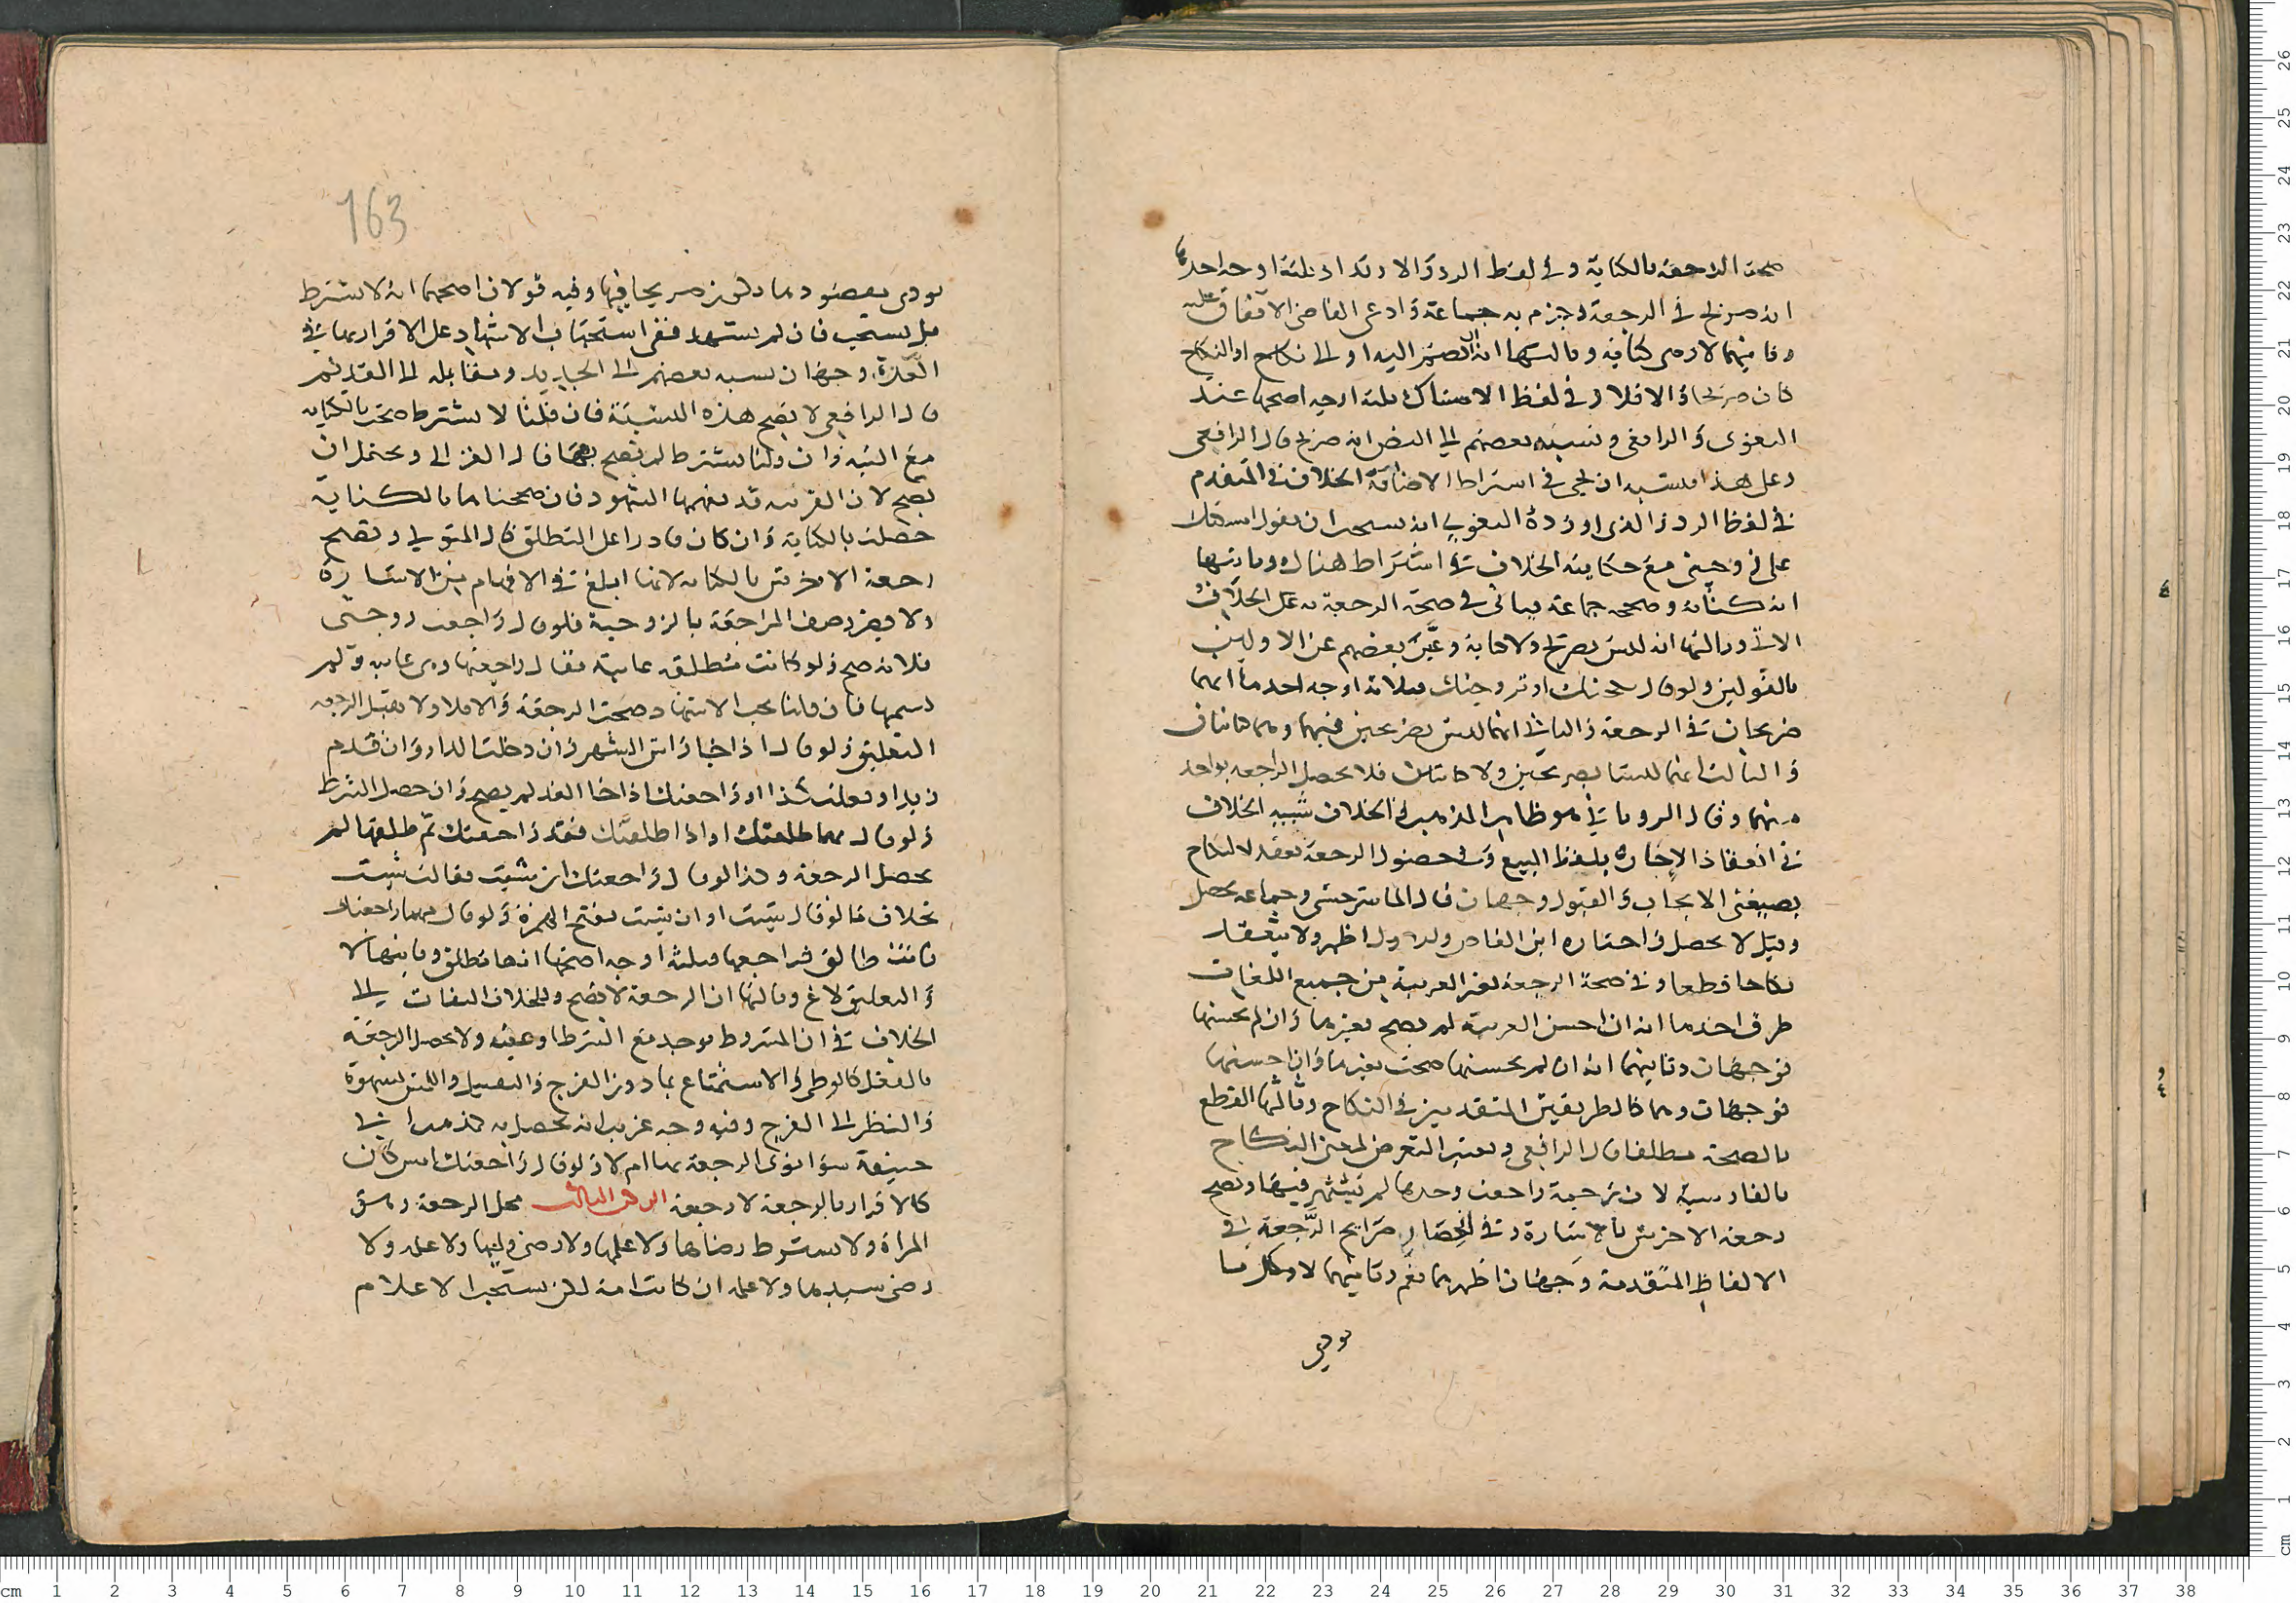 صحت الرجعة بالكناية وفي لفظ الرد والارتداد ثلثة اوجه احدها
انه صريح في الرجعة وجزم به جماعة وادعى القاضي الاتفاق عليه
وثانيهما لا وهي كناية وثالثها انه ان ضم اليه او الى نكاح او النكاح
كان صريحا والا فلا وفي لفظ الامساك ثلثة اوجه اصحها عند
البغوي والرافعي ونسبه بعضهم الى النص انه صريح قال الرافعي
وعلى هذا فيشبه ان يجي في اشتراط الاضافة الخلاف المتقدم
في لفظ الرد والذي اورده البغوي انه يستحب ان يقول امسكتك
على زوجيتي مع حكايته الخلاف في اشتراط هناك وثانيها
انه كناية وصححه جماعة فياتي في صحة الرجعة به على الخلاف
الاتي وثالثها انه ليس بصريح ولا كناية وعبر بعضهم عن الاولين
بالقولين ولو قال نكحتك او تزوجتك فثلاثة اوجه احدها انهما
صريحان في الرجعة والثاني انهما ليسا بصريحين فيها وهما كنايتان
والثالث انهما ليستا بصريحين ولا كنايتين فلا تحصل الرجعة بواحد
منهما وقال الروياني هو ظاهر المذهب والخلاف شبيه الخلاف
في انعقاد الاجارة بلفظ البيع وفي حصول الرجعة بعقد النكاح
بصيغتي الايجاب والقبول وجهان قال الماسرجسي وجماعة يحصل
وقيل لا يحصل واختاره ابن القاص والاول اظهر ولا ينعقد
نكاحا قطعا وفي صحة الرجعة بغير العربية من جميع اللغات
طرق احدها انه ان احسن العربية لم يصح بغيرها وان لم يحسنها
فوجهان وثانيهما انه ان لم يحسنها صحت بغيرها وان احسنها
فوجهان وهما كالطريقين المتقدمين في النكاح وثالثها القطع
بالصحة مطلقا قال الرافعي ويعتبر التعرض لمعنى النكاح
بالفارسية لان ترجمة راجعت وحدها لم تشتهر فيها وتصح
رجعة الاخرس بالاشارة وفي انحصار صرايح الرجعة في
الالفاظ المتقدمة وجهان اظهرهما نعم وثانيهما لا وكل ما
يودي
163
يودي مقصود ما ذكر من صريحا فيها وفيه قولان اصحهما انه لا يشترط
بل يستحب فان لم يشهد ففي استحباب الاشهاد على الاقرار بها في
العدة وجهان نسبه بعضهم الى الجديد ومقابله الى القديم
قال الرافعي لا يصح هذه النسبة فان قلنا لا يشترط صحت بالكناية
مع النية وان قلنا يشترط لم تصح بها قال الغزالي ويحتمل ان
تصح لان القرينة قد تفهمها الشهود فان صححناها بالكناية
حصلت بالكتابة وان كان قادرا على التطلق قال المتولي وتصح
رجعة الاخرس بالكتابة لانها ابلغ في الافهام من الاشارة
ولا يضر وصف المراجعة بالزوجية فلو قال راجعت زوجتي
فلانة صح ولو كانت مطلقته غايبة فقال راجعتها وهي غايبة ولم
يسمها فان قلنا يجب الاشهاد صحت الرجعة والا فلا ولا تقبل الرجعة
التعليق فلو قال اذا جا راس الشهر وان دخلت الدار وان قدم
زيد او فعلت كذا او راجعتك اذا جا الغد لم يصح وان حصل الشرط
ولو قال مهما طلقتك او اذا طلقتك فقد راجعتك ثم طلقها لم
تحصل الرجعة وكذا لو قال راجعتك ان شيت فقالت شيت
بخلاف ما لو قال شيت او ان شيت بفتح الهمزة ولو قال مهما راجعتك
فانت طالق فراجعها فثلثة اوجه اصحها انها تطلق وثانيها لا
والتعليق لاغ وثالثها ان الرجعة لا تصح وللخلاف التفات الى
الخلاف في ان المشروط يوجد مع الشرط او عقبه ولا تحصل الرجعة
بالفعل كالوطي والاستمتاع بما دون الفرج والتقبيل واللمس بشهوة
والنظر الى الفرج وفيه وجه غريب انه تحصل به كمذهب ابي
حنيفة سوا نوى الرجعة بها ام لا ولو قال راجعتك امس كان
كالاقرار بالرجعة لا رجعة الركن الثالث محل الرجعة وهو
المراة ولا يشترط رضاها ولا علمها ولا رضى وليها ولا علمه ولا
رضى سيدها ولا علمه ان كانت امة لكن يستحب الاعلام